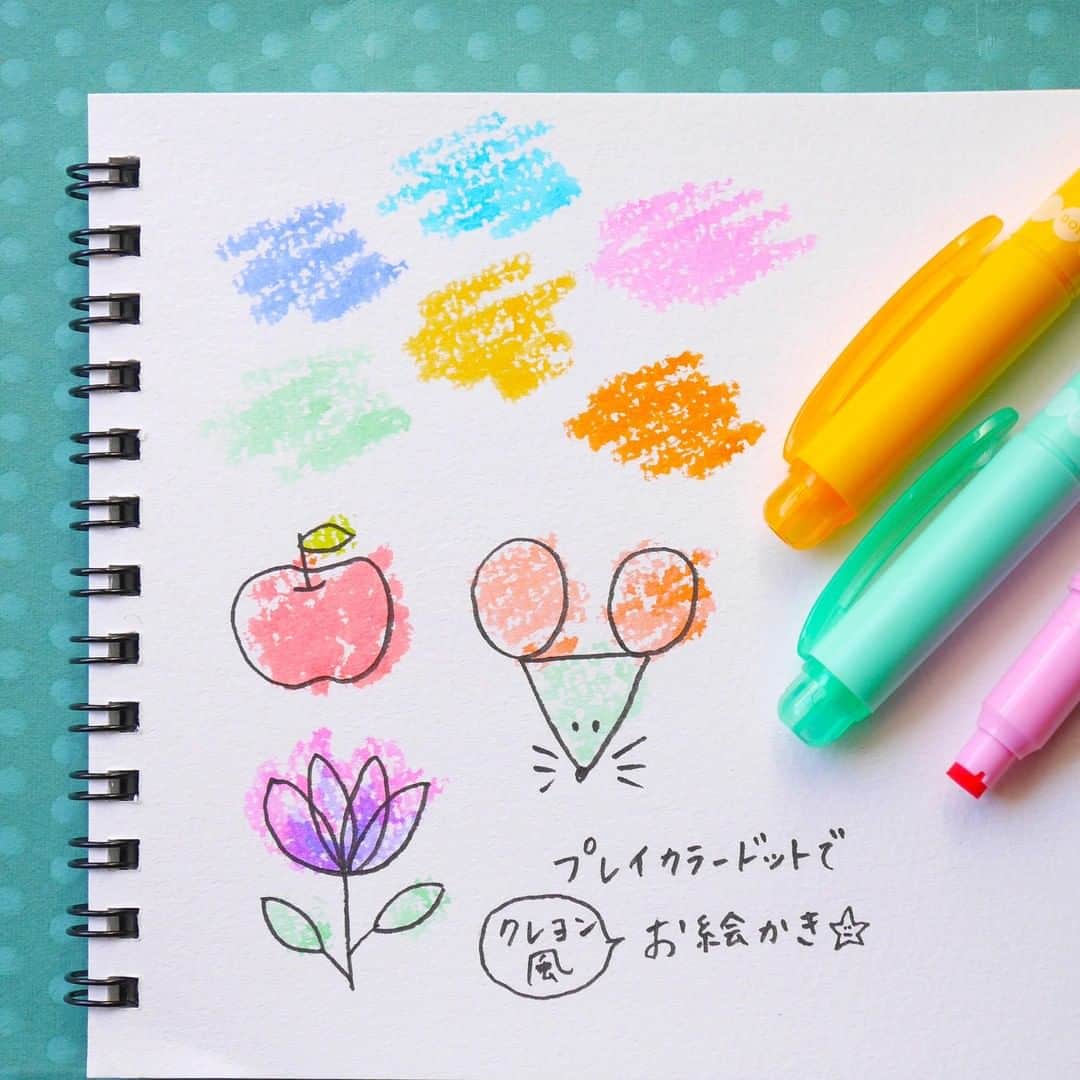 プレイカラードットで
クレヨン
風
お絵かき☆